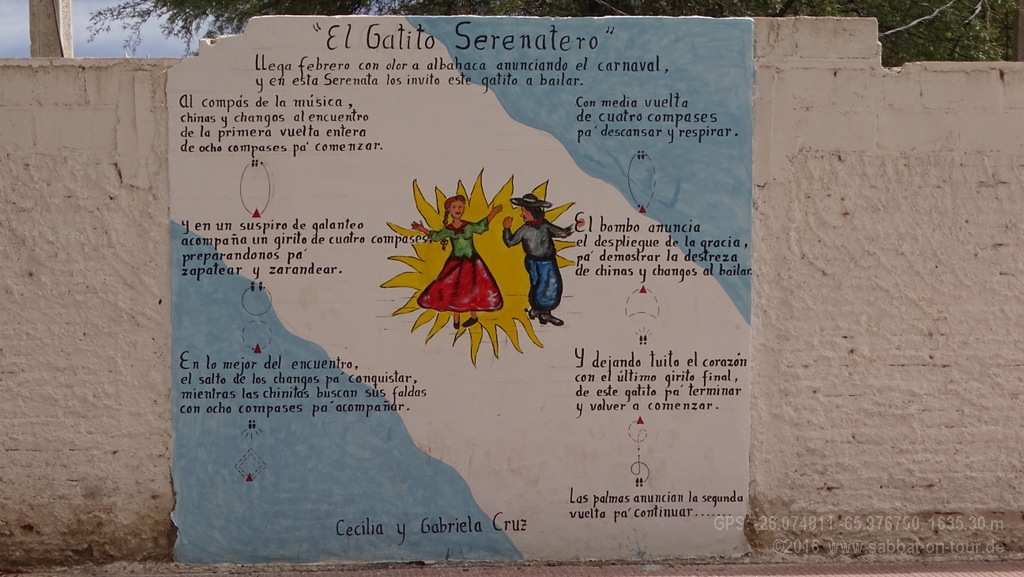 "El Gatito Serenatero"
Llega febrero con olor a albahaca anunciando el carnaval,
y en esta Serenata los invito este gatito a bailar.
Al compás de la música,
chinas y changos al encuentro
de la primera vuelta entera
de ocho compases pa' comenzar.
Y en un suspiro de galanteo
acompaña un girito de cuatro compases,
preparándonos pa'
zapatear y zarandear.
En lo mejor del encuentro,
el salto de los changos pa' conquistar,
mientras las chinitas buscan sus faldas
con ocho compases pa' acompañar.
Con media vuelta
de cuatro compases
pa' descansar y respirar.
El bombo anuncia
el despliegue de la gracia,
pa' demostrar la destreza
de chinas y changos al bailar.
Y dejando tuito el corazón
con el último girito final,
de este gatito pa' terminar
y volver a comenzar.
Las palmas anuncian la segunda
vuelta pa' continuar.......
Cecilia y Gabriela Cruz
GPS -26.074811 -65.976750, 1635.30 m
©2015 www.sabbat-on-tour.de